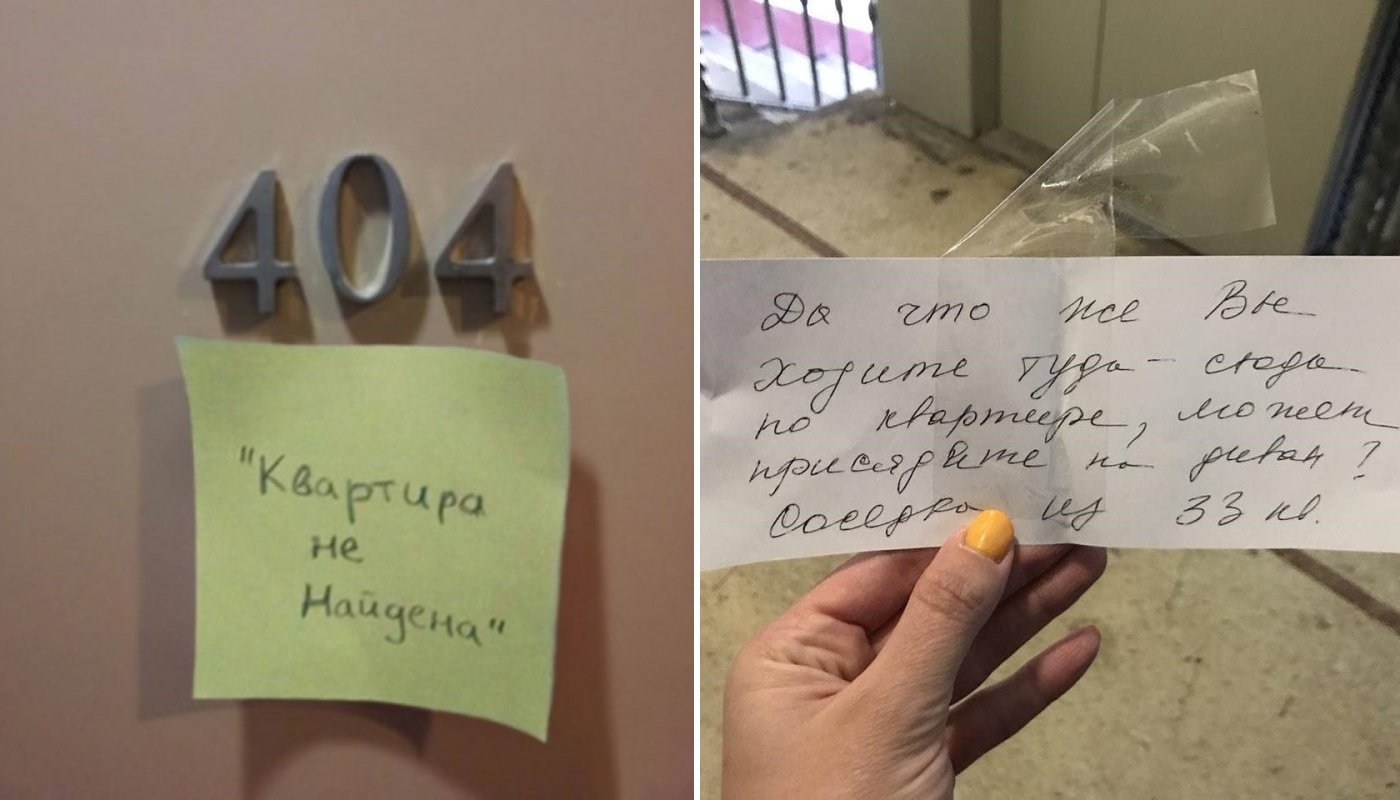 404
"Квартира
не
Найдена"
Да что же Вы
ходите туда - сюда
по квартире, может
присядите на диван?
Соседка из 33 кв.